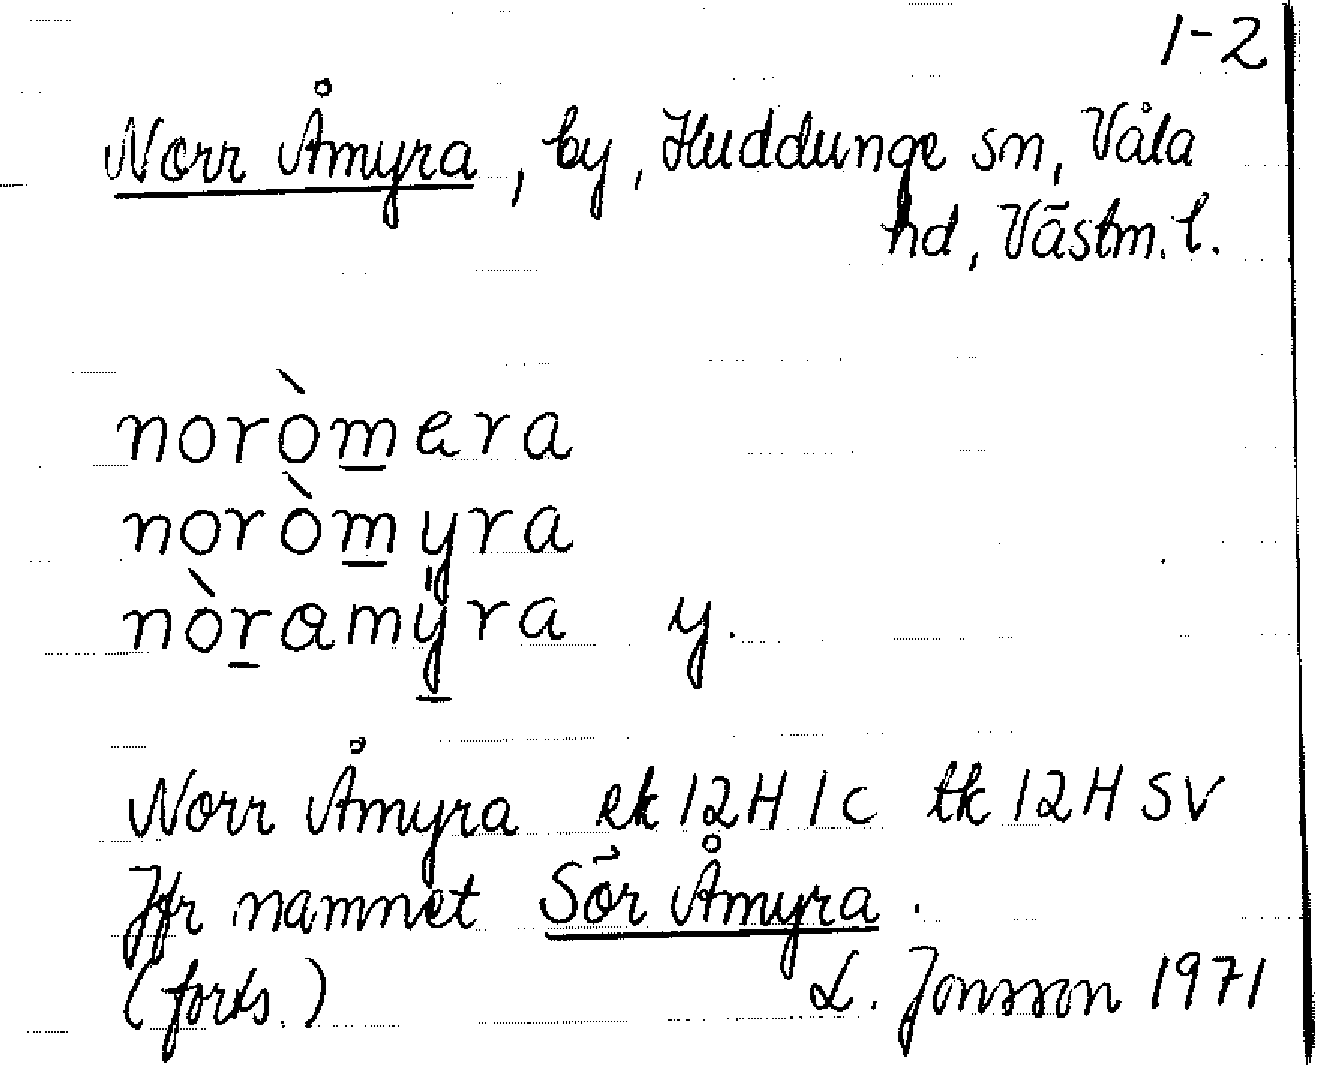 1-2
Norr Åmyra, by, Huddunge sn, Våla
hd, Västm. l.
noròmera
noròmyra
nòramÿra y.
Norr Åmyra ek 12H 1c tk 12H SV
Jfr namnet Sör Åmyra.
(forts.) L. Jonsson 1971